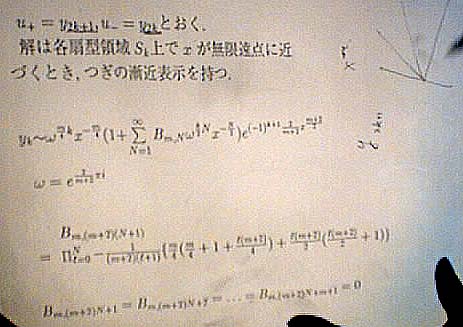 u₊ = y₂ₖ₊₁, u₋ = y₂ₖ とおく.
解は各扇型領域 Sₖ 上で x が無限遠点に近
づくとき, つぎの漸近表示を持つ.
yₖ ~ ω^{\frac{m}{4}k} x^{-\frac{m}{4}} (1 + \sum_{N=1}^{∞} B_{m,N} ω^{\frac{k}{2}N} x^{-\frac{N}{2}}) e^{(-1)^{k+1} \frac{2}{m+2} x^{\frac{m+2}{2}}}
ω = e^{\frac{2}{m+2}πi}
B_{m,(m+2)(N+1)}
= Π_{ℓ=0}^{N} -\frac{1}{(m+2)(ℓ+1)} {\frac{m}{4}(\frac{m}{4} + 1 + \frac{ℓ(m+2)}{4}) + \frac{ℓ(m+2)}{2}(\frac{ℓ(m+2)}{2} + 1)}
B_{m,(m+2)N+1} = B_{m,(m+2)N+2} = … = B_{m,(m+2)N+m+1} = 0